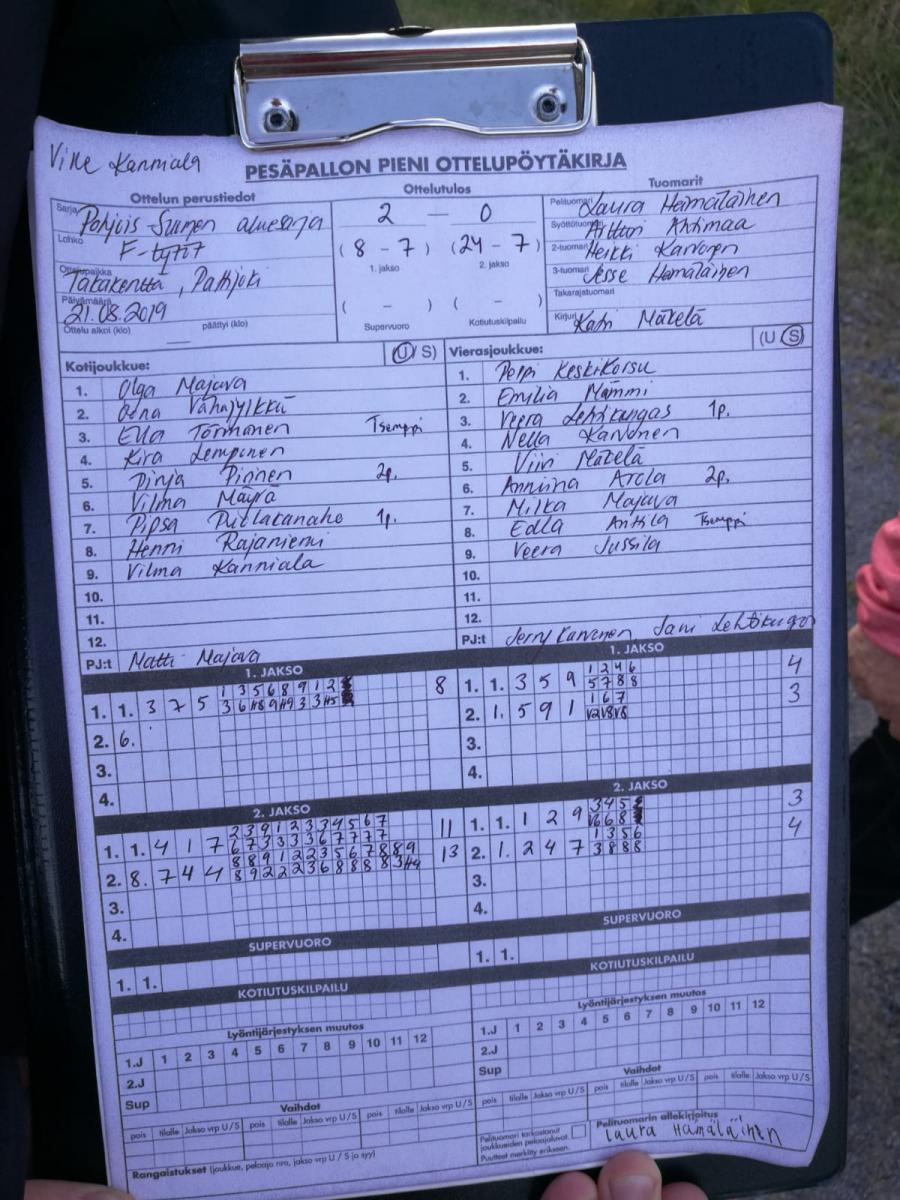 Ville Kanniala
PESÄPALLON PIENI OTTELUPÖYTÄKIRJA
Ottelun perustiedot
Sarja Pohjois Suomen aluesarja
Lohko F-tytöt
Ottelupaikka Takakenttä, Pattijoki
Päivämäärä 21.08.2019
Ottelu alkoi (klo) päättyi (klo)
Ottelutulos
2 – 0
(8 - 7) (24 - 7)
1. jakso 2. jakso
( - ) ( - )
Supervuoro Kotiutuskilpailu
Tuomarit
Pelituomari Laura Hämäläinen
Syöttötuomari Ahtimaa
2-tuomari Heikki Karvonen
3-tuomari Jesse Hämäläinen
Takarajatuomari
Kirjuri Katri Mäkelä
Kotijoukkue: (U/ S)
1. Olga Majava
2. Oona Vähäjylkkä
3. Ella Törmänen Tsemppi
4. Kira Lempinen
5. Pinja Pinnen 2p.
6. Vilma Mäyrä
7. Pipsa Puilakanaho 1p.
8. Henni Rajaniemi
9. Vilma Kanniala
10.
11.
12.
PJ:t Matti Majava
Vierasjoukkue: (U S)
1. Peppi Keskikorsu
2. Emilia Mämmi
3. Veera Lehtikangas 1p.
4. Nella Karvonen
5. Viivi Mäkelä
6. Anniina Arola 2p.
7. Milka Majava
8. Edla Anttila Tsemppi
9. Veera Jussila
10.
11.
12.
PJ:t Jerry Karvonen, Jani Lehtikangas
1. JAKSO
1. 1. 3 7 5 8
1 3 5 6 8 9 1 2
2. 6.
3.
4.
1. JAKSO
1 2 4 6
1. 1. 3 5 9 4
5 7 8 8
1 6 7
2. 1. 5 9 1 3
3.
4.
2. JAKSO
2 3 9 1 2 3 3 4 5 6 7
1. 1. 4 1 7 11
6 7 3 3 3 3 6 7 7 7 7
8 8 9 1 2 2 3 5 6 7 8 8 9
2. 8. 7 4 4 13
3.
4.
2. JAKSO
3 4 5
1. 1. 1 2 9 3
1 3 5 6
2. 1. 2 4 7 4
3 8 8 8
3.
4.
SUPERVUORO
1. 1.
SUPERVUORO
1. 1.
KOTIUTUSKILPAILU
KOTIUTUSKILPAILU
Lyöntijärjestyksen muutos
1.J 1 2 3 4 5 6 7 8 9 10 11 12
2.J
Sup
Lyöntijärjestyksen muutos
1.J 1 2 3 4 5 6 7 8 9 10 11 12
2.J
Sup
Vaihdot
pois tilalle Jakso vrp U/S pois tilalle Jakso vrp U/S
Vaihdot
pois tilalle Jakso vrp U/S pois tilalle Jakso vrp U/S
Rangaistukset (joukkue, pelaaja nro, jakso vrp U / S ja syy)
Pelituomari tarkastanut
joukkueiden pelaajaluvat.
Puutteet merkitty erikseen.
Pelituomarin allekirjoitus
Laura Hämäläinen